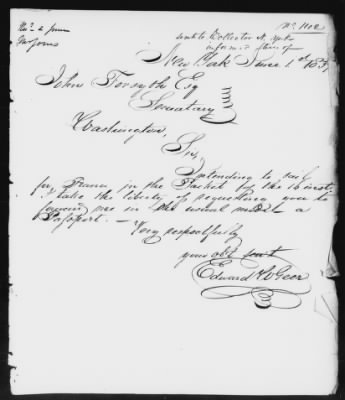 No 1102
sent to Collector N. York
New York June 1st 1837
John Forsyth Esq
Secretary
Washington,
Sir,
Intending to sail
for France in the Packet of the 16 inst.
I take the liberty of requesting you to
forward me in the usual mode a
Passport. —
Very respectfully
your obt servt
Edward